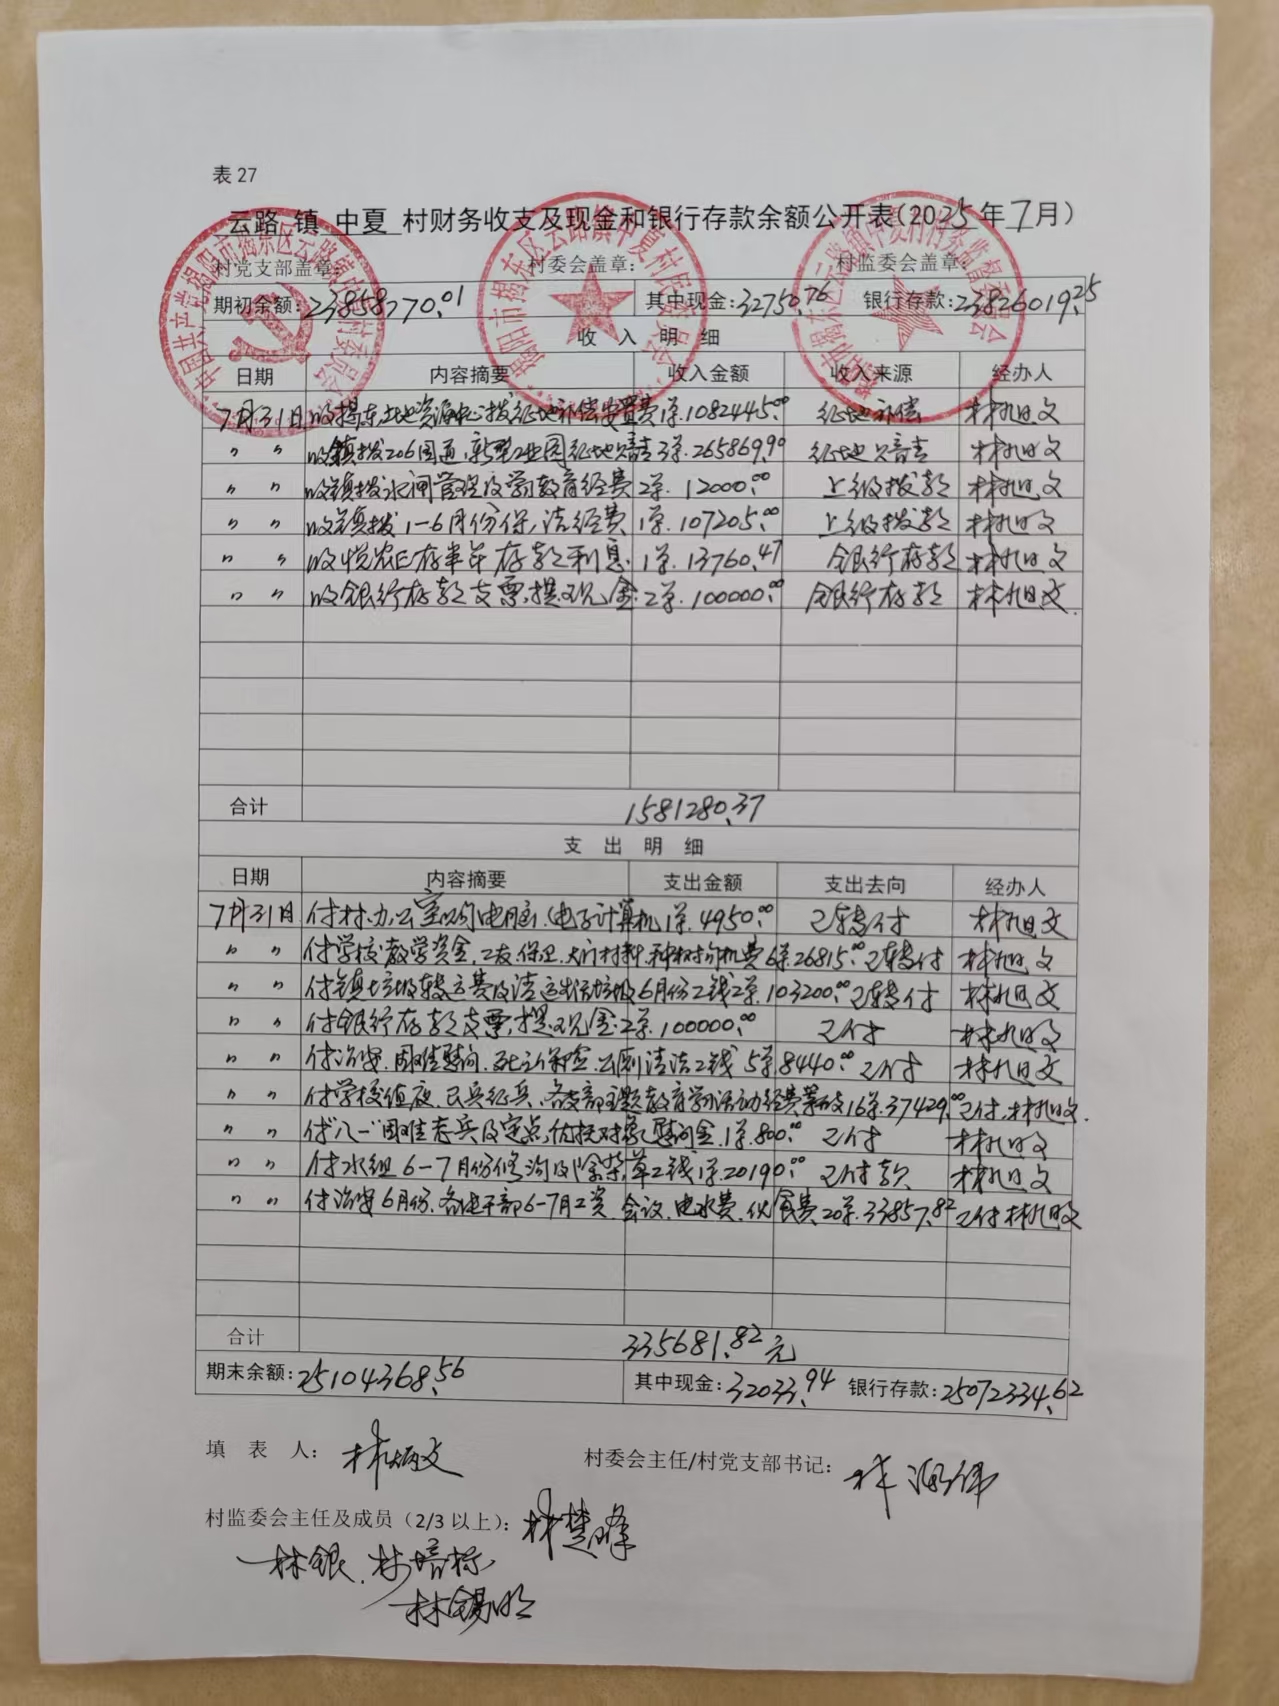 表 27
云路 镇 中夏 村财务收支及现金和银行存款余额公开表(2025年7月)
村党支部盖章: 村委会盖章: 村监委会盖章:
期初余额:23858770.01 其中现金:32750.76 银行存款:23826019.25
收 入 明 细
日期 内容摘要 收入金额 收入来源 经办人
7月31日 收揭东土地资源中心拨征地补偿安置费1单.1082445.00 征地补偿 林旭文
〃 〃 收镇拨206国道,新型工业园征地欠青3单.265869.90 征地欠青 林旭文
〃 〃 收镇拨水闸管理及学习教育经费2单.12000.00 上级拨款 林旭文
〃 〃 收镇拨1-6月份保洁经费1单.107205.00 上级拨款 林旭文
〃 〃 收悦农E存半年存款利息.1单.13760.47 银行存款 林旭文
〃 〃 收银行存款支票,提现金.2单.100000.00 银行存款 林旭文.
合计 1581280.37
支 出 明 细
日期 内容摘要 支出金额 支出去向 经办人
7月31日 付村办公室购电脑(电子计算机1单.4950.00 已转付 林旭文
〃 〃 付学校教学资金,工友,保卫,大门材料,种树机费6单.26815.00 已转付 林旭文
〃 〃 付镇垃圾转运费及清运垃圾6月份工钱2单.103200.00 已转付 林旭文
〃 〃 付银行存款支票,提现金2单.100000.00 已付 林旭文
〃 〃 付治安,困难慰问,死亡保险,公厕清洁工钱5单8440.00 已付 林旭文
〃 〃 付学校值夜,民兵征兵,各支部主题教育学习活动经费等16单.37429.00 已付.林旭文.
〃 〃 付"八一"困难老兵及定点,优抚对象慰问金.1单.800.00 已付 林旭文
〃 〃 付水组6-7月份修沟及除杂草工钱1单20190.00 已付款 林旭文
〃 〃 付治安6月份,各电干部6-7月工资,会议,电水费,伙食费20单.33857.82 已付林旭文
合计 335681.82元
期末余额:25104368.56 其中现金:32033.94 银行存款:25072334.62
填 表 人: 林炳文 村委会主任/村党支部书记: 林
村监委会主任及成员(2/3以上): 林楚峰
林银.林培标
林锡明
中国共产党揭阳市揭东区云路镇中夏村委员会
揭阳市揭东区云路镇中夏村民委员会
揭阳市揭东区云路镇中夏村村务监督委员会